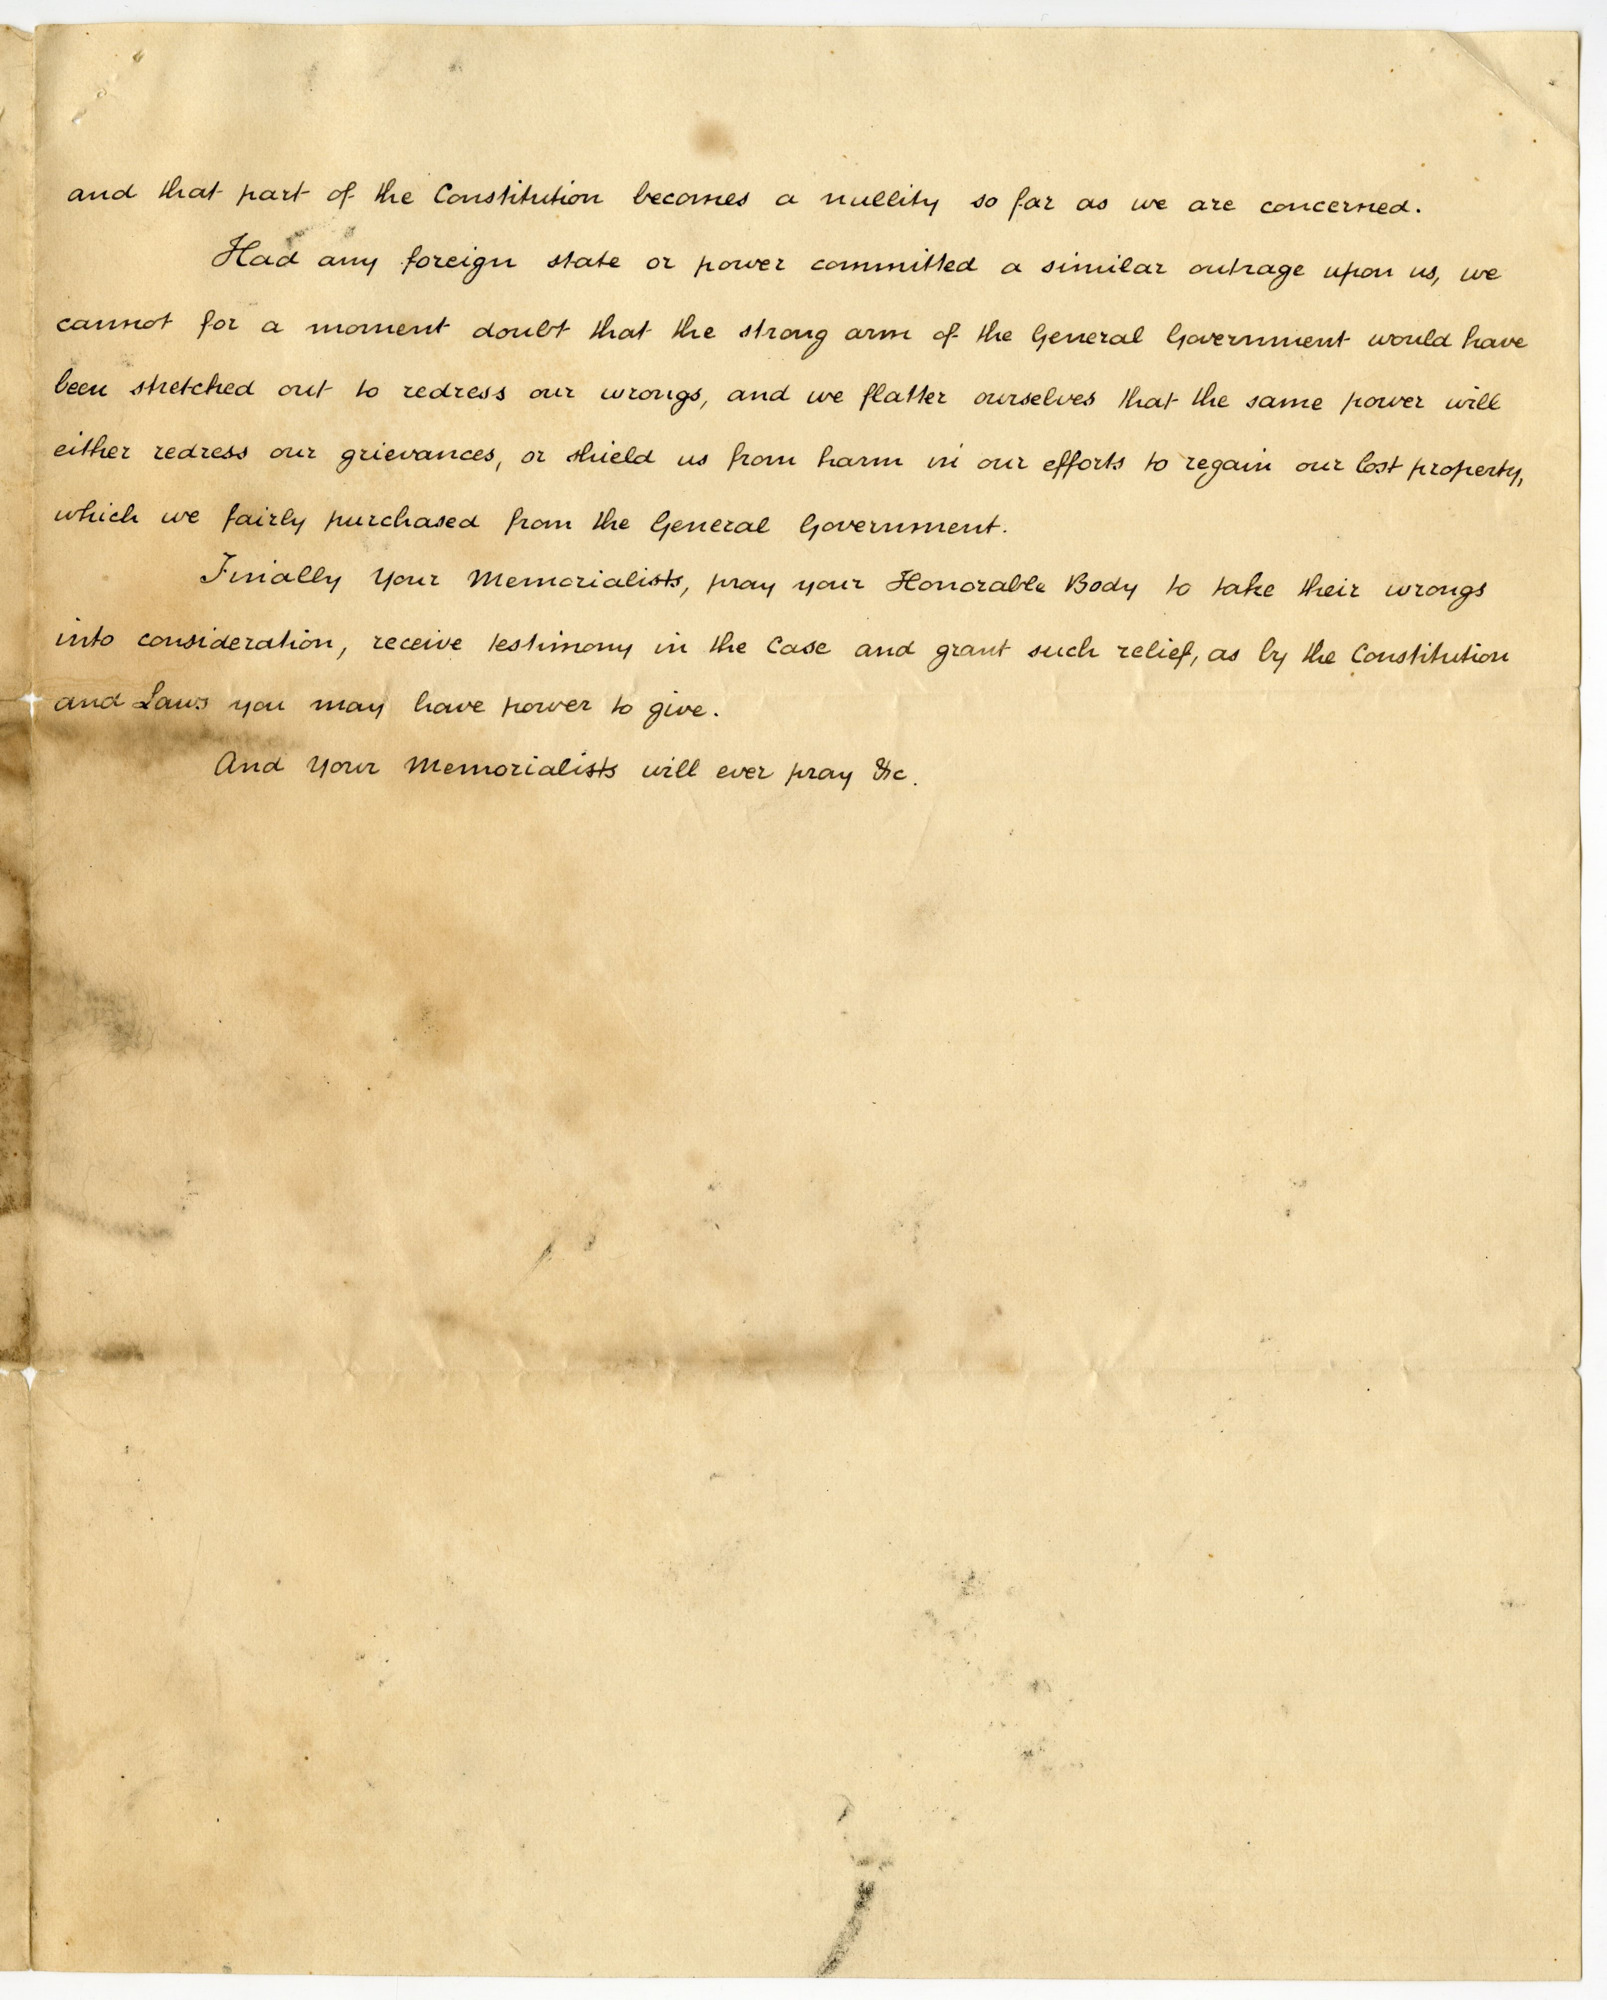 and that part of the Constitution becomes a nullity so far as we are concerned.
Had any foreign state or power committed a similar outrage upon us, we
cannot for a moment doubt that the strong arm of the General Government would have
been stretched out to redress our wrongs, and we flatter ourselves that the same power will
either redress our grievances, or shield us from harm in our efforts to regain our lost property,
which we fairly purchased from the General Government.
Finally Your Memorialists, pray your Honorable Body to take their wrongs
into consideration, receive testimony in the Case and grant such relief, as by the Constitution
and Laws you may have power to give.
And Your Memorialists will ever pray &c.